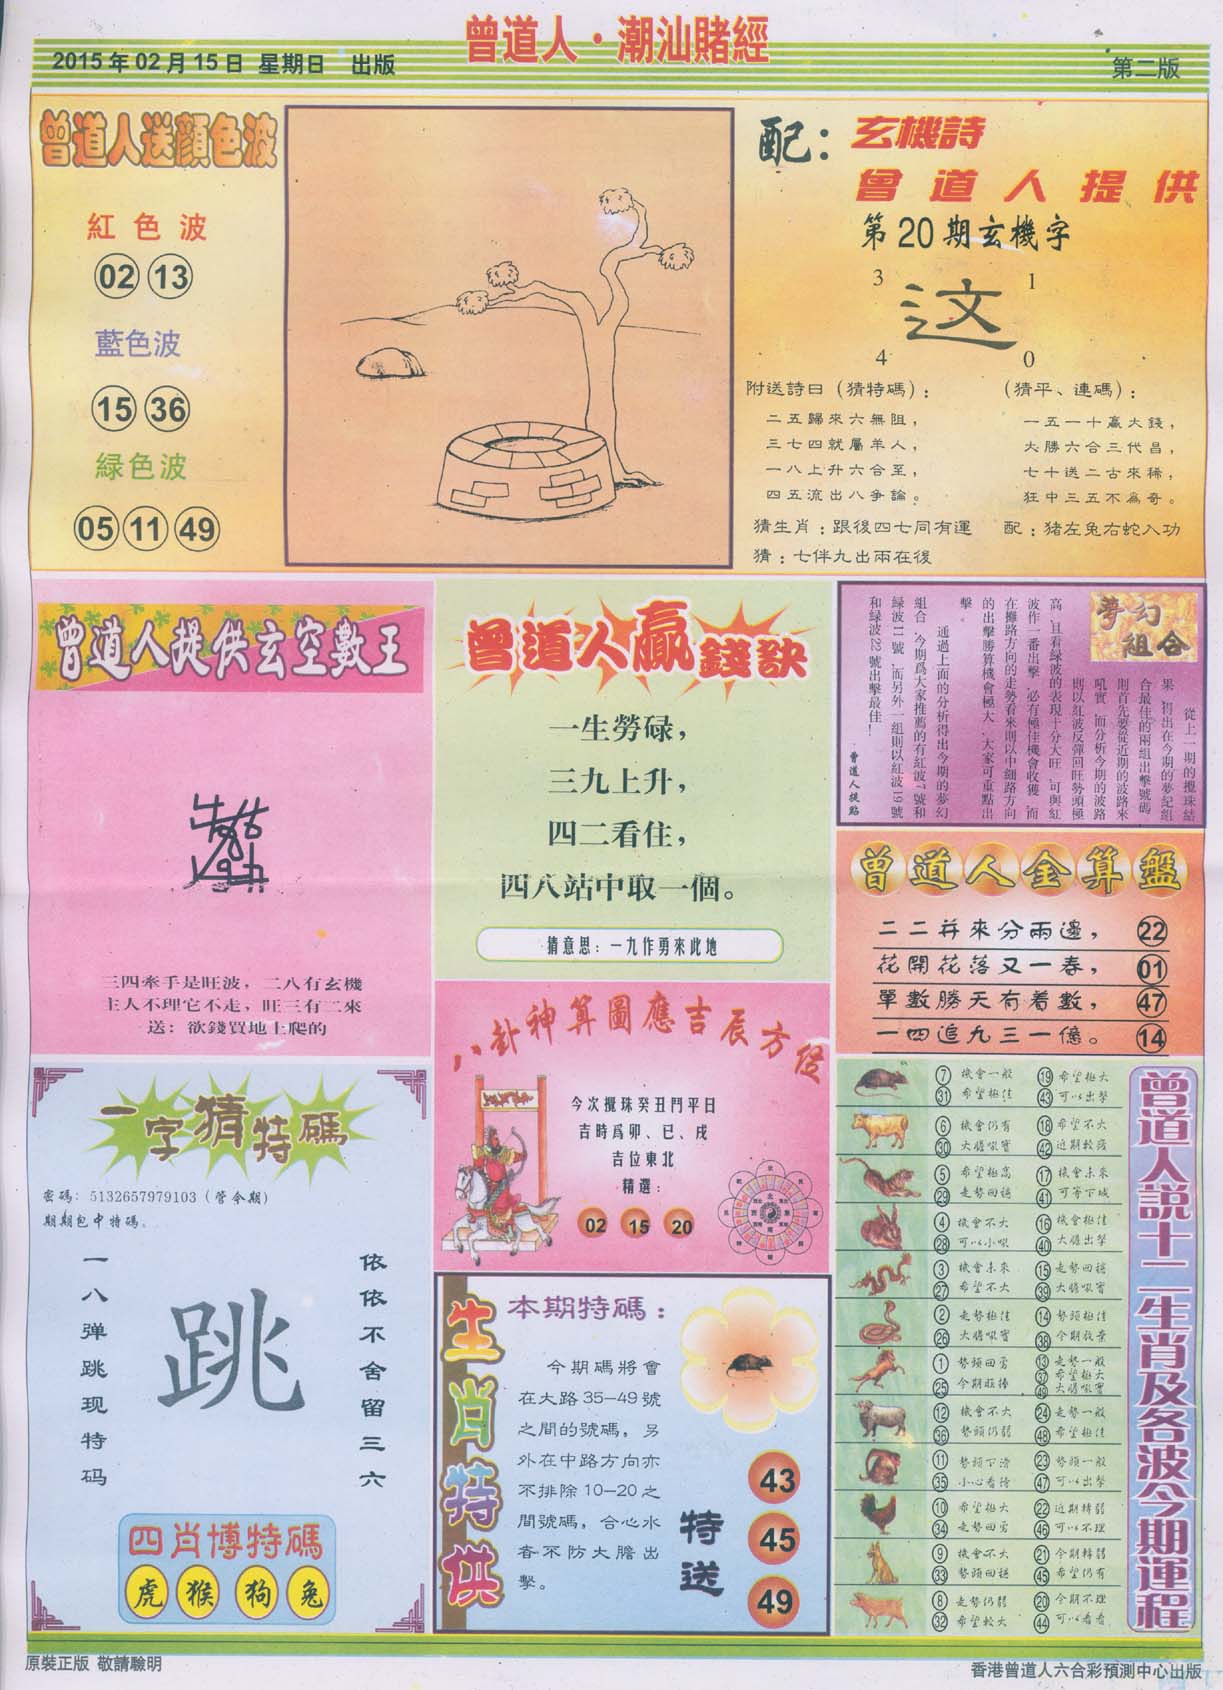 曾道人·潮汕賭經
2015年02月15日 星期日 出版
第二版
曾道人送顏色波
紅色波
02 13
藍色波
15 36
綠色波
05 11 49
配：玄機詩
曾道人提供
第20期玄機字
3 1
这
4 0
附送詩曰（猜特碼）：
二五歸來六無阻，
三七四就屬羊人，
一八上升六合至，
四五流出八爭論。
（猜平、連碼）：
一五一十贏大錢，
大勝六合三代昌，
七十送二古來稀，
狂中三五不為奇。
猜生肖：跟後四七同有運
配：猪左兔右蛇入功
猜：七伴九出兩在後
曾道人提供玄空數王
三四牽手是旺波，二八有玄機
主人不理它不走，旺三有二來
送：欲錢買地上爬的
曾道人贏錢訣
一生勞碌，
三九上升，
四二看住，
四八站中取一個。
猜意思：一九作勇來此地
夢幻組合
從上一期的攪珠結
果，得出在今期的夢幻組
合最佳的兩組出擊號碼
則首先要從近期的波路來
吼實，而分析今期的波路
則以紅波反彈回旺勢頭極
高，且看緑波的表現十分大旺，可與紅
波作一番出擊，必有極佳機會收獲，而
在攤路方向的走勢看來則以中細路方向
的出擊勝算機會極大，大家可重點出
擊
通過上面的分析得出今期的夢幻
組合，今期爲大家推薦的有紅波1號和
緑波11號，而另外一組則以紅波19號
和緑波22號出擊最佳！
曾道人提點
曾道人金算盤
二二并來分兩邊， 22
花開花落又一春， 01
單數勝天有着數， 47
一四追九三一億。 14
八卦神算圖應吉辰方位
今次攪珠癸丑鬥平日
吉時爲卯、巳、戌
吉位東北
精選：
02 15 20
一字猜特碼
密碼：5132657979103（管令期）
期期包中特碼。
一八弹跳现特码
跳
依依不舍留三六
四肖博特碼
虎 猴 狗 兔
生肖特供
本期特碼：
今期碼將會
在大路35—49號
之間的號碼，另
外在中路方向亦
不排除10—20之
間號碼，合心水
者不防大膽出
擊。
特送
43
45
49
曾道人説十二生肖及各波今期運程
7 機會一般 19 希望極大
31 希望極佳 43 可以出擊
6 機會仍有 18 希望不大
30 大膽吼實 42 近期較疲
5 希望極高 17 機會未來
29 走勢回穩 41 可等下城
4 機會不大 16 機會極佳
28 可以小吼 40 大膽出擊
3 機會未來 15 走勢回穩
27 希望不大 39 大膽吼實
2 走勢極佳 14 勢頭極佳
26 大膽吼實 38 今期放棄
1 勢頭回勇 13 走勢一般
37 希望極大
25 今期旺捧 49 大膽吼實
12 機會不大 24 走勢一般
36 勢頭仍弱 48 希望極佳
11 勢頭下滑 23 勢頭一般
35 小心看待 47 可以出擊
10 希望極大 22 近期轉弱
34 走勢回勇 46 可以不理
9 機會不大 21 今期轉弱
33 勢頭回穩 45 希望仍有
8 走勢仍弱 20 今期不理
32 希望較大 44 可以看看
原裝正版 敬請驗明
香港曾道人六合彩預測中心出版